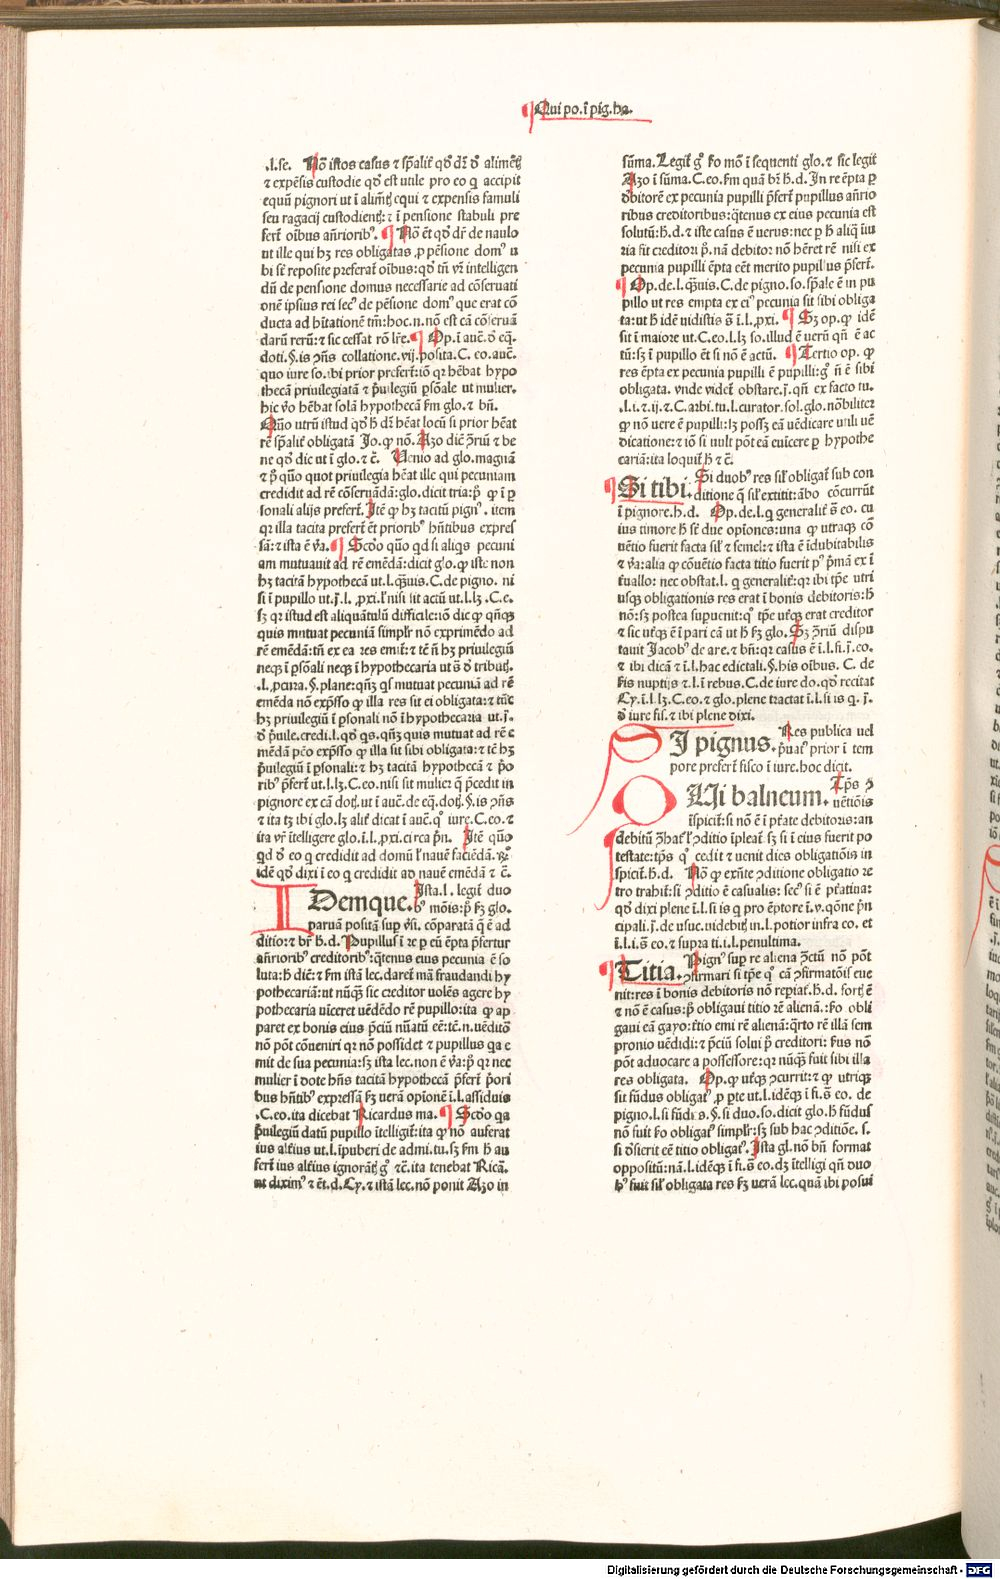 Qui po. ī pig. ha.
.l. se. Nō istos casus ⁊ sp̄alit̄ qd̄ dr̄ ō alimētꝭ
⁊ expēsis custodie qd̄ est utile pro eo q̄ accipit
equū pignori ut ī alimētꝭ equi ⁊ expensis famuli
seu ragacij custodientꝭ: ⁊ ī pensione stabuli pre
fert̄ oībus ān̄rioribꝰ. Nō ēt qd̄ dr̄ de naulo
ut ille qui hꝫ res obligatas ꝓ pēsione domꝰ u
bi st̄ reposite preferat̄ oībus: qd̄ tn̄ vr̄ intelligen
dū de pensione domus necessarie ad cōseruati
onē ipsius rei secꝰ de pēsione domꝰ que erat cō
ducta ad hītationē tm̄: hoc. n. nō est cā cōseruā
darū rerū: ⁊ sic cessat rō lr̄e. Op. ī auē. ō eq̄.
doti. §. is ꝯn̄s collatione. vij. posita. C. eo. auē.
quo iure so. ibi prior prefert̄: iō qꝛ hēbat hypo
thecā priuilegiatā ⁊ p̄uilegiū ꝑsōale ut mulier.
hic v̄o hēbat solā hypothecā fm glo. ⁊ bn̄.
Quo utrū istud qd̄ h̄ dr̄ hēat locū si prior hēat
rē sp̄alit̄ obligatā Jo. ꝙ nō. Azo diē ꝯriū ⁊ be
ne qd̄ dic ut ī glo. ⁊ c̄. Uenio ad glo. magnā
⁊ p̄ quo quot priuilegia hēat ille qui pecuniam
credidit ad rē cōseruādā: glo. dicit tria: p̄ ꝙ ī ꝑ
sonali alijs prefert̄. Itē ꝙ hꝫ tacitū pignꝰ. item
qꝛ illa tacita prefert̄ ēt prioribꝰ hn̄tibus expres
sā: ⁊ ista ē v̄a. Scd̄o quo qd si aliqs pecuni
am mutuauit ad rē emēdā: dicit glo. ꝙ iste non
hꝫ tacitā hypothecā ut. l. q̄uis. C. de pigno. ni
si ī pupillo ut. j. l. ꝓxi. l' nisi sit actū ut. l. lꝫ. C. e.
sꝫ qꝛ istud est aliquātulū difficile: iō dic ꝙ qn̄qꝫ
quis mutuat pecuniā simplr̄ nō exprimēdo ad
rē emēdā: tn̄ ex ea res emit̄: ⁊ tē n̄ hꝫ priuilegiū
neqꝫ ī ꝑsōali neqꝫ ī hypothecaria ut s̄ ō tributꝭ.
.l. ꝓcura. §. plane: qn̄qꝫ qs mutuat pecuniā ad rē
emēda nō exp̄sso ꝙ illa res sit ei obligata: ⁊ tūc
hꝫ priuilegiū ī ꝑsonali nō ī hypothecaria ut. j.
ō p̄uile. credi. l. qd̄ qs. qn̄qꝫ quis mutuat ad rē e
mēdā pēo exp̄sso ꝙ illa sit sibi obligata: ⁊ tē hꝫ
p̄uilegiū ī ꝑsonali: ⁊ hꝫ tacitā hypothecā ⁊ p̄o
ribꝰ p̄fert̄ ut. l. lꝫ. C. eo. nisi sit mulier q̄ p̄cedit in
pignore ex cā dotꝭ. ut ī auē. de eq̄. dotꝭ. §. is ꝯn̄s
⁊ ita tꝫ ibi glo. lꝫ alit̄ dicat ī auē. qꝰ iure. C. eo. ⁊
ita vr̄ ītelligere glo. ī. l. ꝓxi. circa p̄n. Itē quo
qd ō eo q̄ credidit ad domū l' nauē faciēdā. R̄.
idē qd̄ dixi ī eo q̄ credidit ad nauē emēdā ⁊ c̄.
IDemque. Ista. l. legit̄ duo
bꝰ mōis: p̄ fꝫ glo.
paruā positā sup v̄si. cōparatā q̄ ē ad
ditio: ⁊ br̄ h̄. d. Pupillus ī re p eū ēpta p̄fertur
an̄rioribꝰ creditoribꝰ: q̄tenus eius pecunia ē so
luta: h̄ diē: ⁊ fm istā lec. daret̄ mā fraudandi hy
pothecariā: ut nūqꝫ sic creditor uolēs agere hy
pothecaria uiceret uēdēdo rē pupillo: ita ꝙ ap
paret ex bonis eius p̄ciū nūatū eē: tē. n. uēditō
nō pōt cōueniri qꝛ nō possidet ⁊ pupillus qa e
mit de sua pecunia: sꝫ ista lec. non ē v̄a: p̄ qꝛ nec
mulier ī dote hn̄s tacitā hypothecā p̄fert̄ p̄ori
bus hn̄tibꝰ expressā fꝫ uerā opīonē ī. l. assiduis
.C. eo. ita dicebat Ricardus ma. Scd̄o qa
p̄uilegiū datū pupillo ītelligit̄: ita ꝙ nō auferat
ius alt̄ius ut. l. īpuberi de admi. tu. sꝫ fm h̄ au
fert̄ ius alt̄ius ignorātꝭ gꝰ ⁊c̄. ita tenebat Rica.
ut diximꝰ ⁊ ēt. d. Cy. ⁊ istā lec. nō ponit Azo in
sūma. Legit̄ gꝰ fo mō ī sequenti glo. ⁊ sic legit
Azo ī sūma. C. eo. fm quā br̄ h̄. d. In re ēpta p
dbitorē ex pecunia pupilli p̄fert̄ pupillus an̄rio
ribus creditoribus: q̄tenus ex eius pecunia est
solutū: h̄. d. ⁊ iste casus ē uerus: nec p h̄ aliq̄ iu
ria fit creditori p̄. nā debitoꝛ nō hēret rē nisi ex
pecunia pupilli ēpta eēt merito pupillus p̄fert̄.
Op. de. l. q̄uis. C. de pigno. so. sp̄ale ē in pu
pillo ut res empta ex eiꝰ pecunia sit sibi obliga
ta: ut h̄ idē uidistis s̄ ī. l. ꝓxi. Sꝫ op. ꝙ idē
sit ī maiore ut. C. eo. l. lꝫ so. illud ē uerū qn̄ ē ac
tū: sꝫ ī pupillo ēt si nō ē actū. Tertio op. ꝙ
res ēpta ex pecunia pupilli ē pupilli: gꝰ n̄ ē sibi
obligata. vnde videt̄ obstare. j. qn̄ ex facto tu.
.l. i. ⁊. ij. ⁊ C. arbi. tu. l. curator. sol. glo. nōbilitez
ꝙ nō vere ē pupilli: lꝫ possꝫ eā uēdicare utili uē
dicatione: ⁊ iō si uult pōt eā euīcere p hypothe
cariā: ita loquit̄ h̄ ⁊ c̄.
Si tibi. Si duobꝰ res sil' obligat̄ sub con
ditione q̄ sil' extitit: ābo cōcurrūt
ī pignore. h. d. Op. de. l. q̄ generalit̄ s̄ eo. cu
ius timore h̄ st̄ due opiones: una ꝙ utraqꝫ cō
uētio fuerit facta sil' ⁊ semel: ⁊ ista ē īdubitabilis
⁊ v̄a: alia ꝙ cōuētio facta titio fuerit pꝰ p̄mā ex ī
t̄uallo: nec obstat. l. q̄ generalit̄: qꝛ ibi tp̄e utri
usqꝫ obligationis res erat ī bonis debitoris: h̄
nō: sꝫ postea supuenit: qꝰ tp̄e ut̄qꝫ erat creditor
⁊ sic ut̄qꝫ ē ī pari cā ut h̄ fꝫ glo. Sꝫ ꝯriū dispu
tauit Jacobꝰ de are. ⁊ bn̄: qꝛ casus ē ī. l. si. j. eo.
⁊ ibi dicā ⁊ ī. l. hac edictali. §. his oībus. C. de
scis nuptijs ⁊. l. ī rebus. C. de iure do. qd̄ recitat
Cy. ī. l. lꝫ. C. eo. ⁊ glo. plene tractat ī. l. si is q. j.
ō iure fis. ⁊ ibi plene dixi.
SI pignus. Res publica uel
p̄uatꝰ prior ī tem
pore prefert̄ fisco ī iure. hoc dicit.
QUi balneum. Tp̄s ꝯ
uētiōis
īspicit̄: si nō ē ī p̄tate debitoris: an
debitū ꝯhat̄ l' ꝯditio īpleat̄ sꝫ si ī eius fuerit po
testate: tp̄s qꝰ cedit ⁊ uenit dies obligatiōis in
spicit̄. h. d. Nō ꝙ exn̄te ꝯditione obligatio re
tro trahit̄: si ꝯditio ē casualis: secꝰ si ē p̄tatiua:
qd̄ dixi plene ī. l. si is q pro ēptore ī. v. qōne p̄n
cipali. j. de usuc. uidebitꝭ in. l. potior infra co. et
ī. l. i. s̄ eo. ⁊ supra ti. i. l. penultima.
Titia. Pignꝰ sup re aliena ꝯctū nō pōt
ꝯfirmari si tp̄e qꝰ cā ꝯfirmatōis eue
nit: res ī bonis debitoris nō repiat̄. h. d. fortꝭ ē
⁊ nō ē casus: p̄ obligaui titio rē alienā: fo obli
gaui eā gayo: t̄tio emi rē alienā: q̄rto rē illā sem
pronio uēdidi: ⁊ p̄ciū solui p̄ creditori: fus nō
pōt aduocare a possessore: qꝛ nūqꝫ fuit sibi illa
res obligata. Op. ꝙ ut̄qꝫ ꝯcurrit: ⁊ ꝙ utriqꝫ
sit fūdus obligatꝰ ꝓ pte ut. l. idēqꝫ ī fi. s̄ eo. de
pigno. l. si fūdus. §. si duo. so. dicit glo. h̄ fūdus
nō fuit fo obligatꝰ simplr̄: sꝫ sub hac ꝯditiōe. s.
si dsierit eē titio obligatꝰ. Ista gl. nō bn̄ format
oppositū: nā. l. idēqꝫ ī fi. s̄ eo. dꝫ ītelligi qn̄ duo
bꝰ fuit sil' obligata res fꝫ uerā lec. quā ibi posui
Digitalisierung gefördert durch die Deutsche Forschungsgemeinschaft - DFG